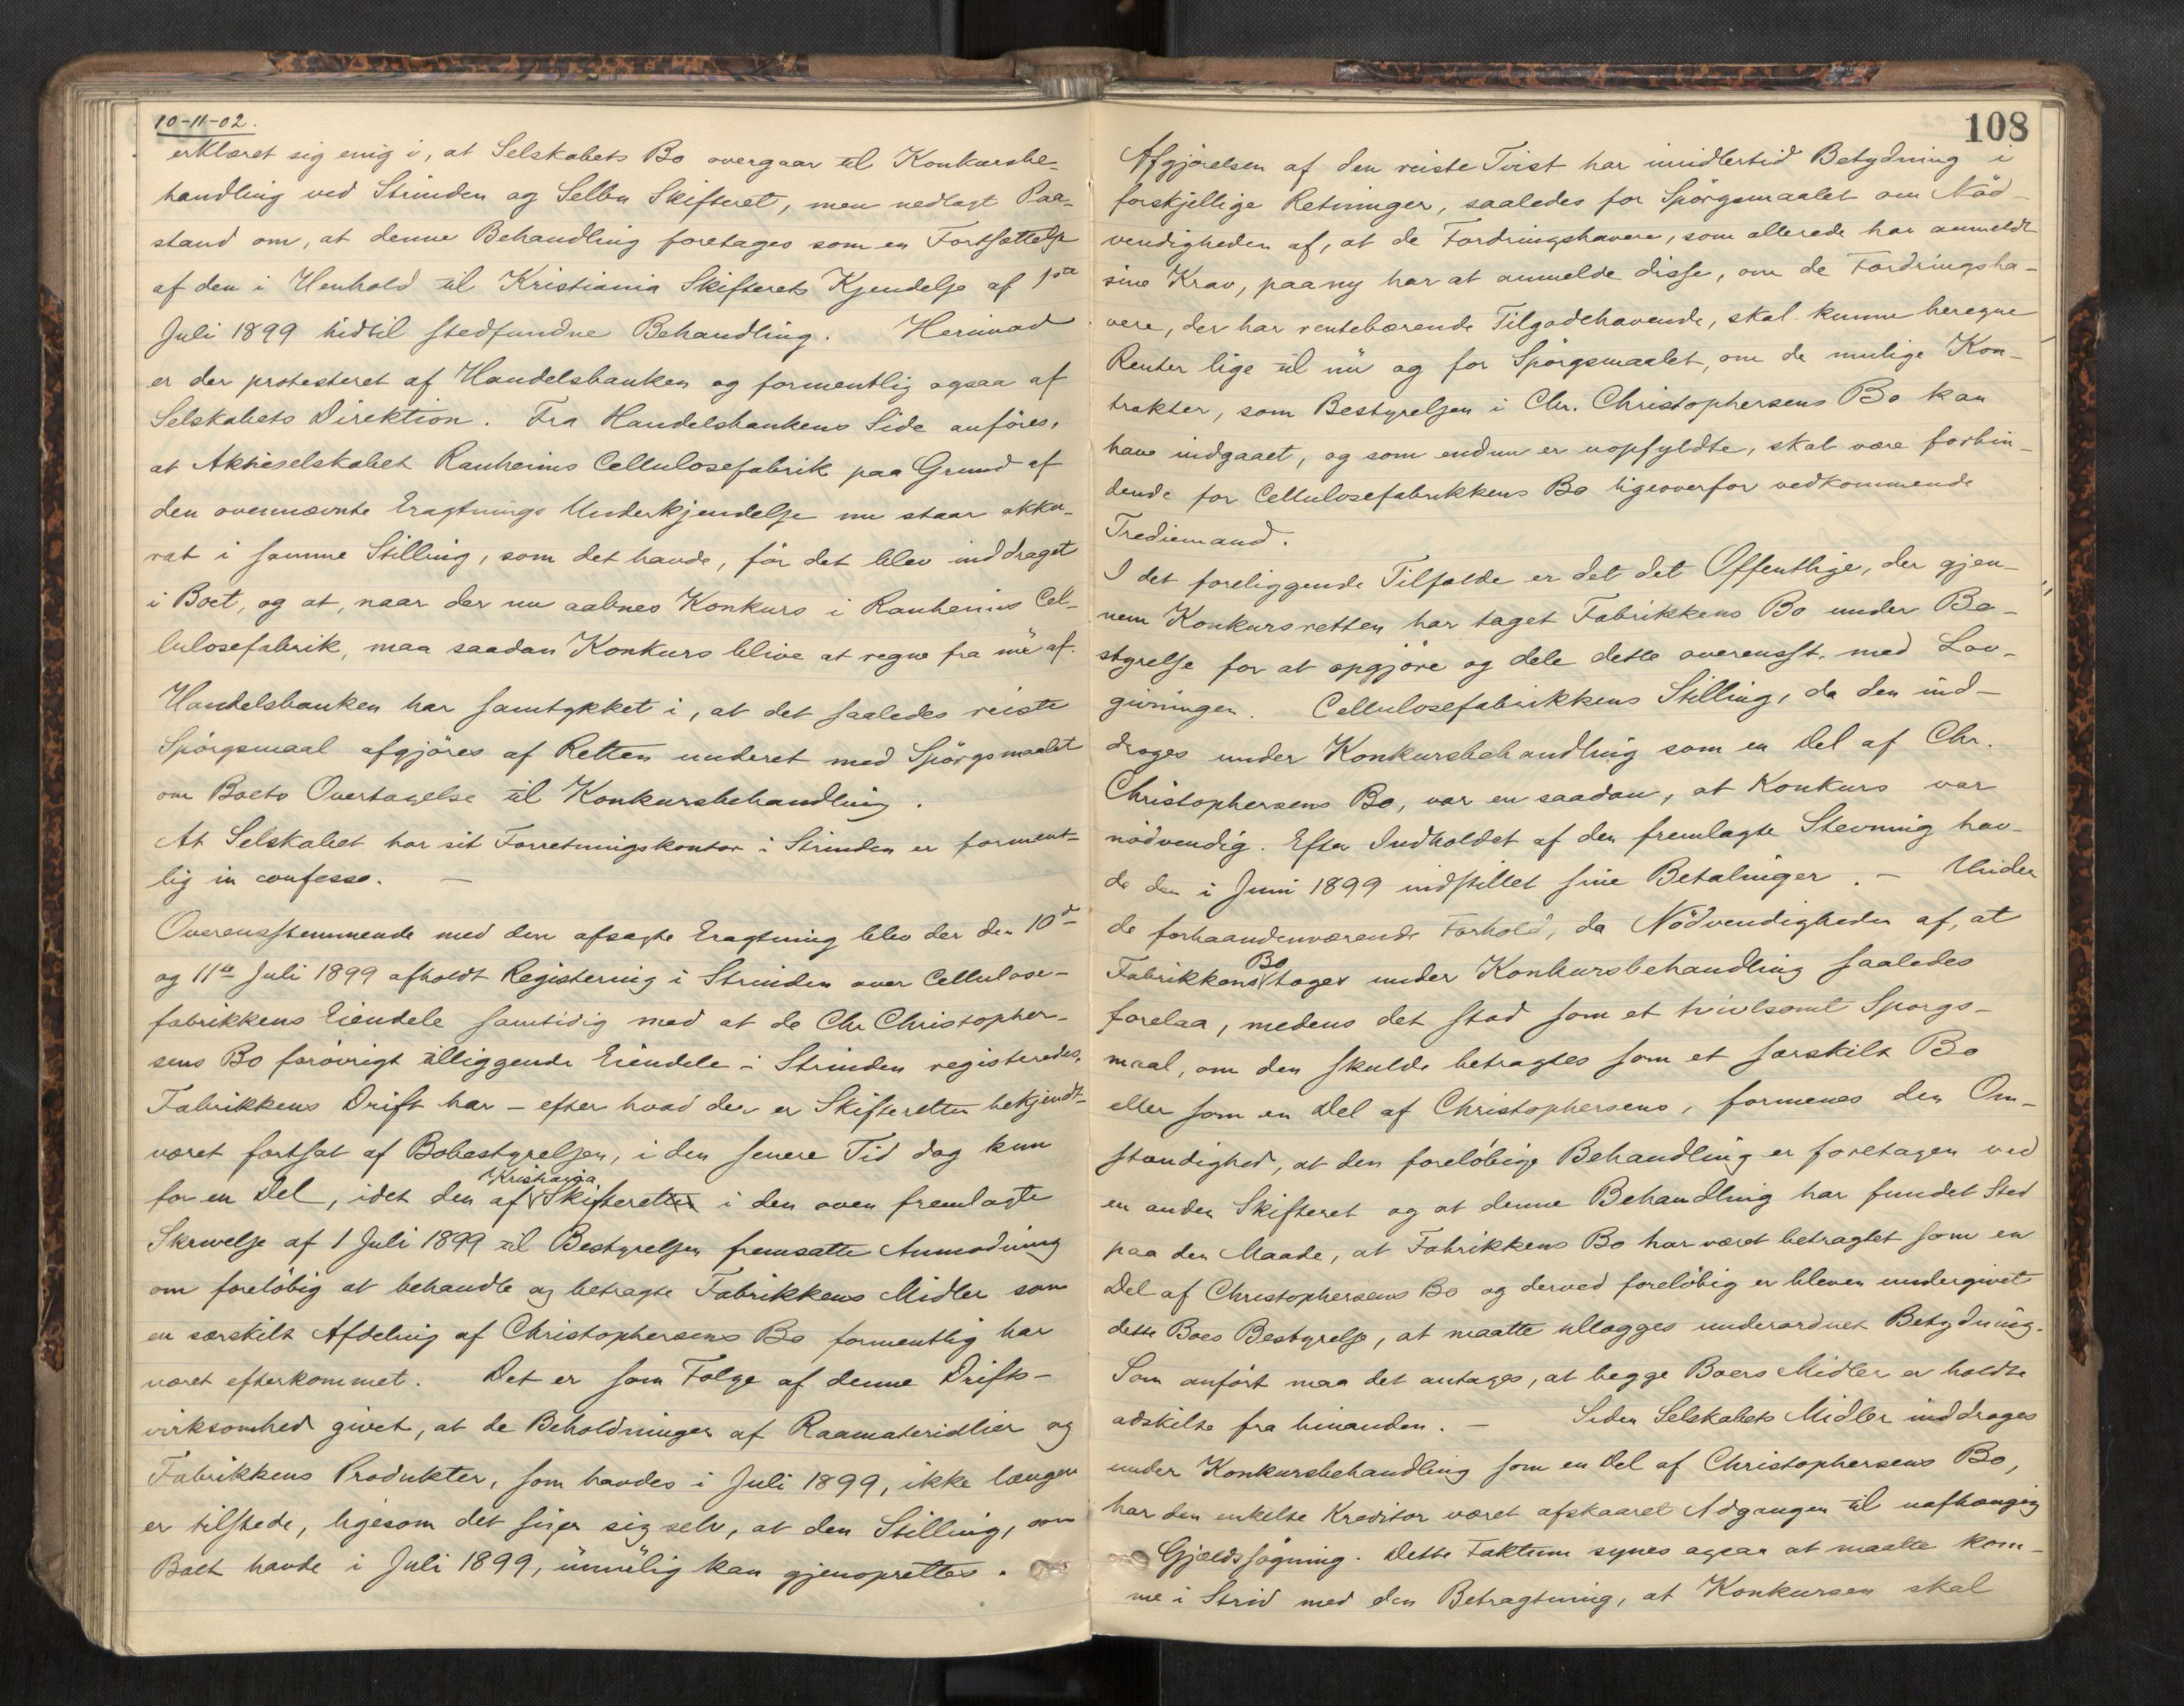 10-11-02.
erklæret sig enig i, at Selskabets Bo overgaar til Konkursbe-
handling ved Strinden og Selbu Skifteret, men nedlagt Paa-
stand om, at denne Behandling foretages som en Fortsættelse
af den i Henhold til Kristiania Skifterets Kjendelse af 1ste
Juli 1899 hidtil stedfundne Behandling. Herimod
er der protesteret af Handelsbanken og formentlig ogsaa af
Selskabets Direktion. Fra Handelsbankens Side anföres,
at Aktieselskabet Ranheims Cellulosefabrik paa Grund af
den ovennævnte Eragtnings Underkjendelse nu staar akku-
rat i samme Stilling, som det havde, för det blev inddraget
i Boet, og at, naar der nu aabnes Konkurs i Ranheims Cel-
lulosefabrik, maa saadan Konkurs blive at regne fra nu af.
Handelsbanken har samtykket i, at det saaledes reiste
Spörgsmaal afgjöres af Retten underet med Spörgsmaalet
om Boets Overtagelse til Konkursbehandling.
At Selskabet har sit Forretningskontor i Strinden er forment-
lig in confesso. —
Overensstemmende med den afsagte Eragtning blev der den 10de
og 11te Juli 1899 afholdt Registering i Strinden over Cellulose-
fabrikkens Eiendele samtidig med at de Chr Christopher-
sens Bo forövrigt tilliggende Eiendele i Strinden registeredes.
Fabrikkens Drift har – efter hvad der er Skifteretten bekjendt –
været fortsat af Bobestyrelsen, i den senere Tid dog kun
for en Del, idet den af Kristiania Skifteret i den oven fremlagte
Skrivelse af 1 Juli 1899 til Bestyrelsen fremsatte Anmodning
om forelöbig at behandle og betragte Fabrikkens Midler som
en særskilt Afdeling af Christophersens Bo formentlig har
været efterkommet. Det er som Fölge af denne Drifts-
virksomhed givet, at de Beholdninger af Raamateridlier og
Fabrikkens Produkter, som havdes i Juli 1899, ikke længer
er tilstede, ligesom det siger sig selv, at den Stilling, som
Boet havde i Juli 1899, umulig kan gjenoprettes.
108
Afgjörelsen af den reiste Tvist har imidlertid Betydning i
forskjellige Retninger, saaledes for Spörgsmaalet om Nöd-
vendigheden af, at de Fordringshavere, som allerede har anmeldt
sine Krav, paany har at anmelde disse, om de Fordringsha-
vere, der har rentebærende Tilgodehavende, skal kunne beregne
Renter lige til nu og for Spörgsmaalet, om de mulige Kon-
trakter, som Bestyrelsen i Chr. Christophersens Bo kan
have indgaaet, og som endnu er uopfyldte, skal være forbin-
dende for Cellulosefabrikkens Bo ligeoverfor vedkommende
Trediemand.
I det foreliggende Tilfælde er det det Offentlige, der gjen-
nem Konkursretten har taget Fabrikkens Bo under Be-
styrelse for at opgjöre og dele dette overensst. med Lov-
givningen. Cellulosefabrikkens Stilling, da den ind-
droges under Konkursbehandling som en Del af Chr.
Christophersens Bo, var en saadan, at Konkurs var
nödvendig. Efter Indholdet af den fremlagte Stevning hav-
de den i Juni 1899 indstillet sine Betalinger. – Under
de forhaandenværende Forhold, da Nödvendigheden af, at
Fabrikkens Bo toges under Konkursbehandling saaledes
forelaa, medens det stod som et tvivlsomt Spörgs-
maal, om den skulde betragtes som et særskilt Bo
eller som en Del af Christophersens, formenes den Om-
stændighed, at den forelöbige Behandling er foretagen ved
en anden Skifteret og at denne Behandling har fundet Sted
paa den Maade, at Fabrikkens Bo har været betragtet som en
Del af Christophersens Bo og derved forelöbig er bleven undergivet
dette Boes Bestyrelse, at maatte tillægges underordnet Betydning.
Som anfört maa det antages, at begge Boers Midler er holdte
adskilte fra hinanden. – Siden Selskabets Midler inddroges
under Konkursbehandling som en Del af Christophersens Bo,
har den enkelte Kreditor været afskaaret Adgangen til uafhængig
Gjældssögning. Dette Faktum synes ogsaa at maatte kom-
me i Strid med den Betragtning, at Konkursen skal